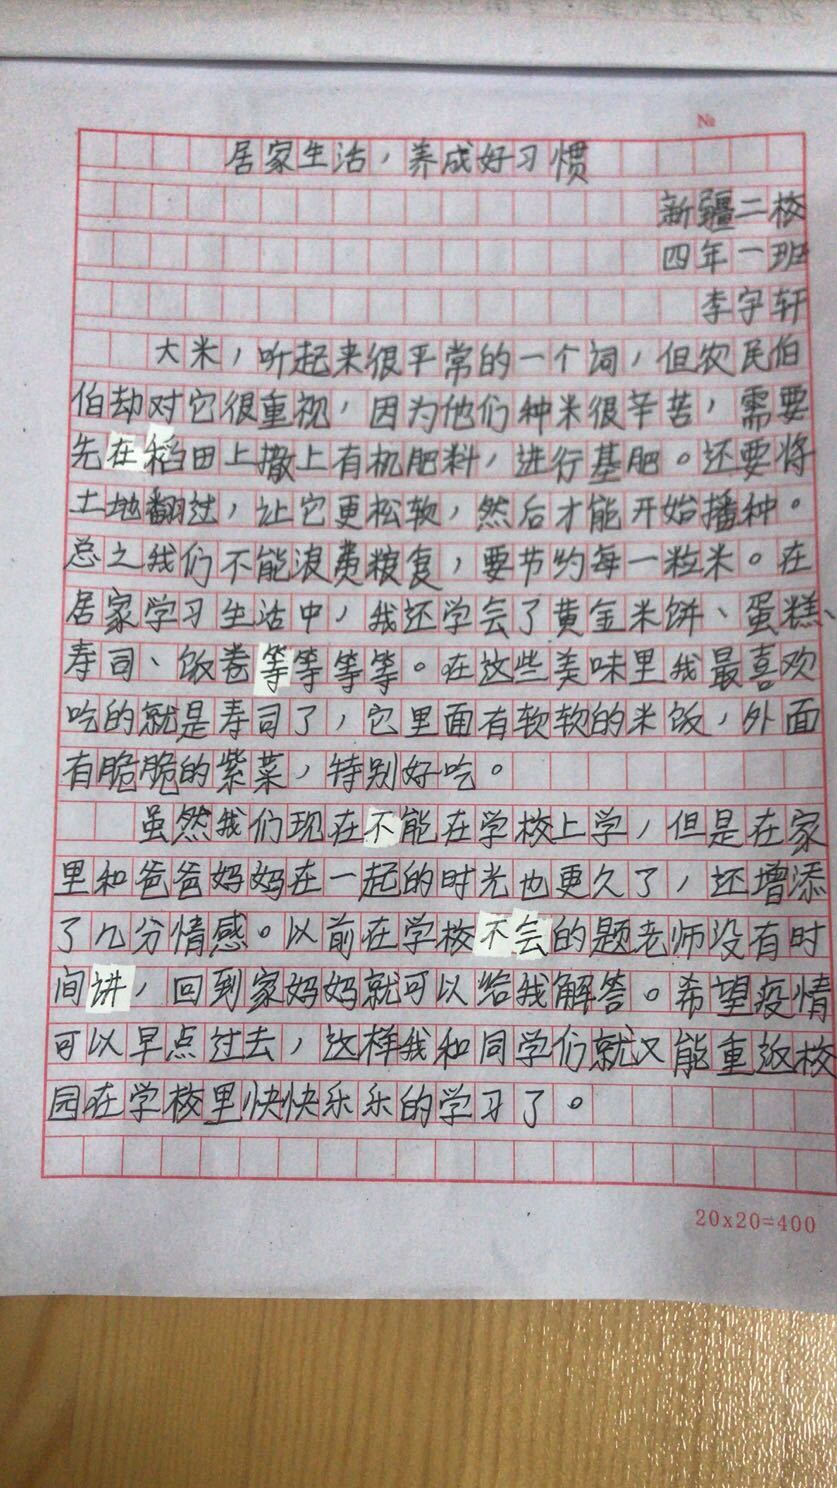 №
居家生活，养成好习惯
新疆二校
四年一班
李宇轩
大米，听起来很平常的一个词，但农民伯
伯劫对它很重视，因为他们种米很辛苦，需要
先在稻田上撒上有机肥料，进行基肥。还要将
土地翻过，让它更松软，然后才能开始播种。
总之我们不能浪费粮复，要节约每一粒米。在
居家学习生活中，我还学会了黄金米饼、蛋糕、
寿司、饭卷等等等等。在这些美味里我最喜欢
吃的就是寿司了，它里面有软软的米饭，外面
有脆脆的紫菜，特别好吃。
虽然我们现在不能在学校上学，但是在家
里和爸爸妈妈在一起的时光也更久了，还增添
了几分情感。以前在学校不会的题老师没有时
间讲，回到家妈妈就可以给我解答。希望疫情
可以早点过去，这样我和同学们就又能重返校
园在学校里快快乐乐的学习了。
20x20=400